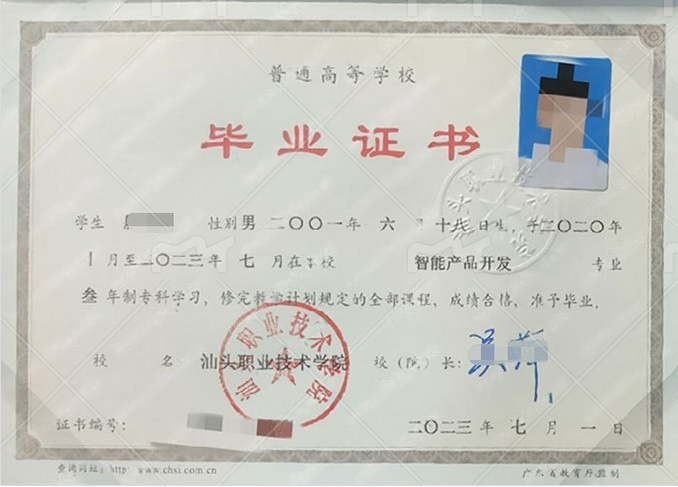 普通高等学校
毕业证书
学生 性别男 二〇〇一年 六 月十八日生，于二〇二〇年
月至二〇二三年 七 月在本校 智能产品开发 专业
叁 年制专科学习，修完教学计划规定的全部课程，成绩合格，准予毕业。
校 名 汕头职业技术学院 校（院）长：
证书编号： 二〇二三年 七 月 一 日
查询网址：http: www.chsi.com.cn 广东省教育厅监制
汕头职业技术学院